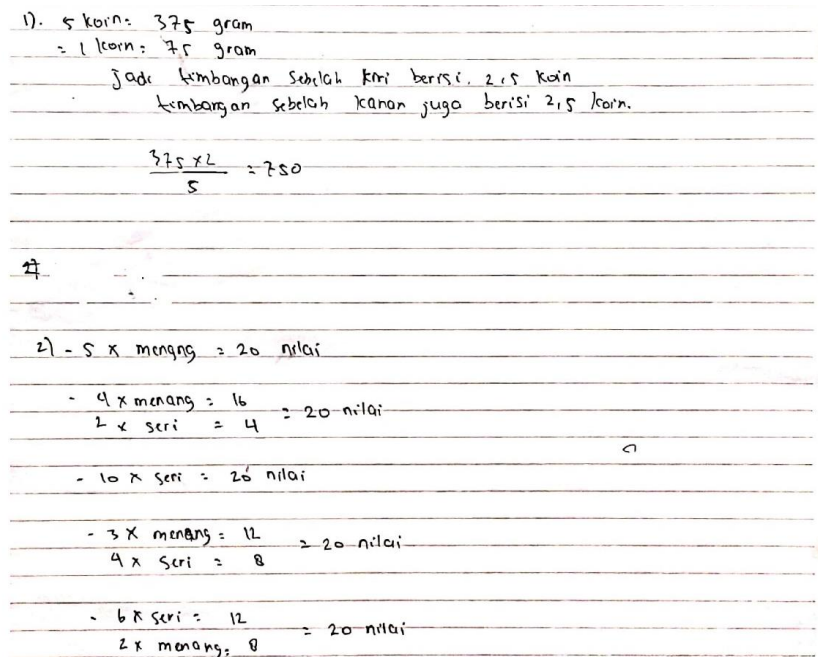 1). 5 koin = 375 gram
= 1 koin = 75 gram
Jadi timbangan sebelah kiri berisi 2,5 koin
timbangan sebelah kanan juga berisi 2,5 koin.
375 x 2 / 5 = 750
2) - 5 x menang = 20 nilai
- 4 x menang = 16
2 x seri = 4 = 20 nilai
- 10 x seri = 20 nilai
- 3 x menang = 12
4 x seri = 8 = 20 nilai
- 6 x seri = 12
2 x menang = 8 = 20 nilai